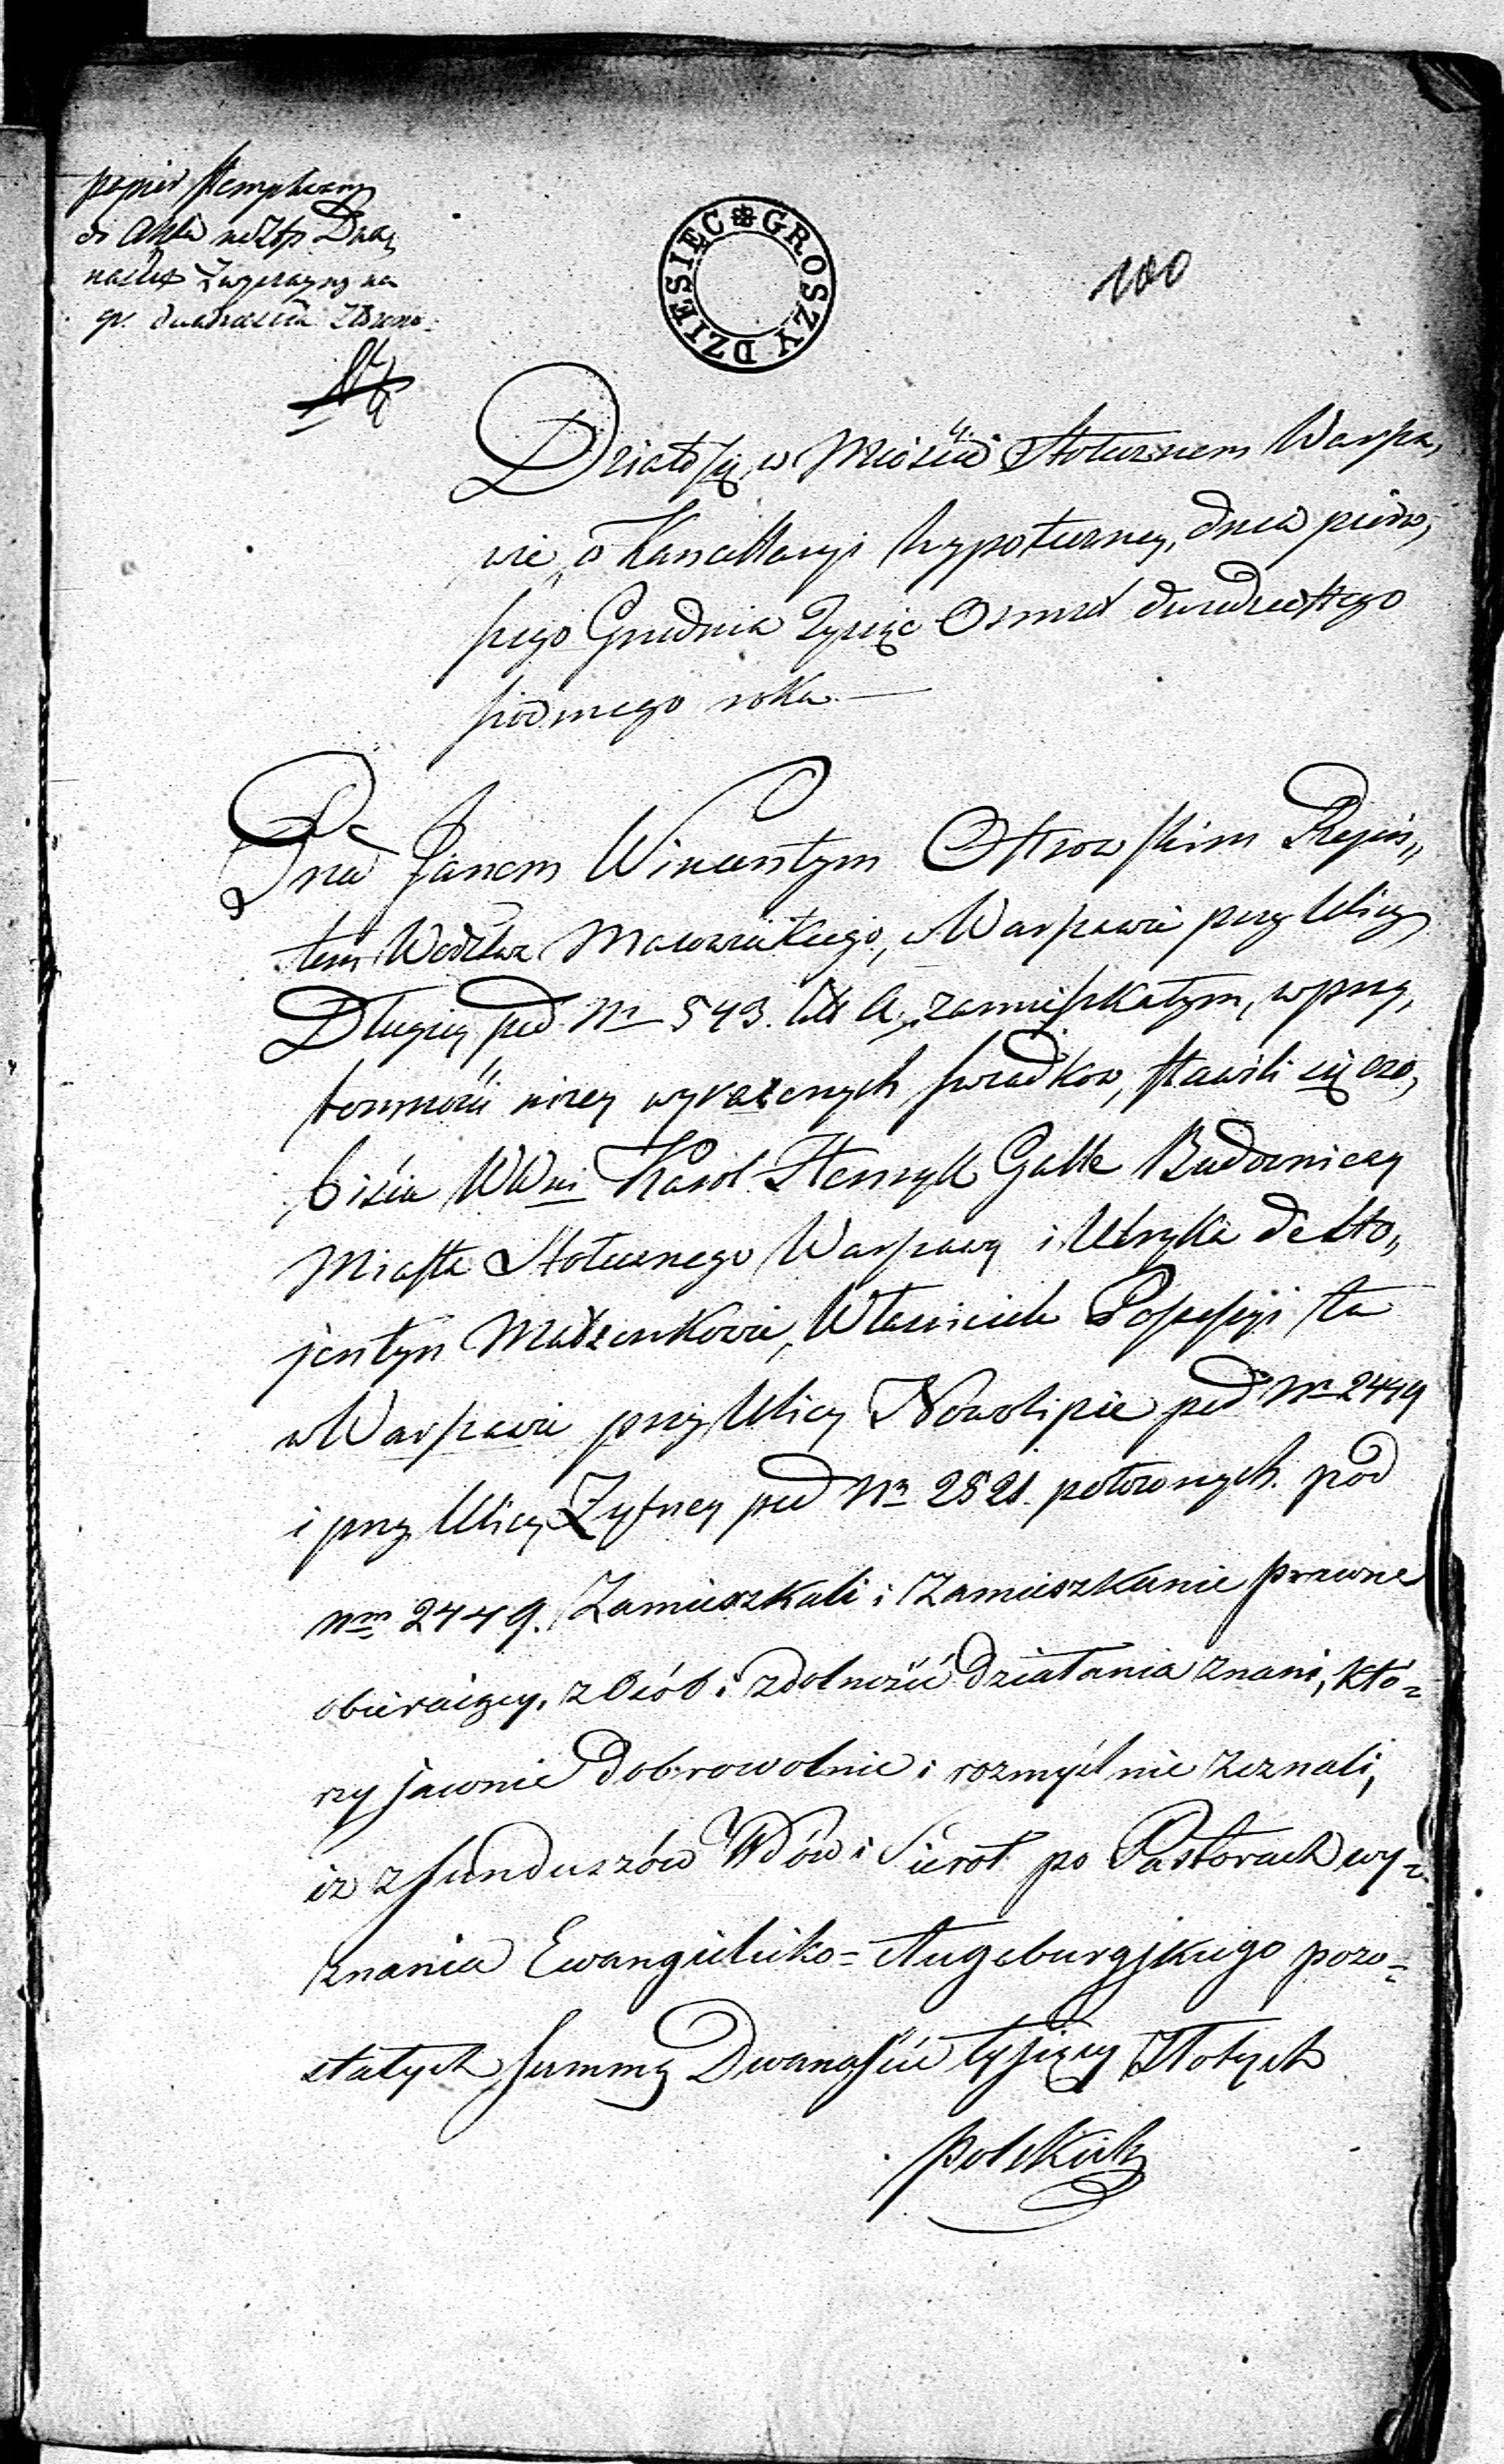 papier stemplowany
do Aktu na Złp Dwa-
naście Zwyczajny na
gr. dwadzieścia Złożono
DZIESIĘC GROSZY
100
Działo się w Mieście Stołecznem Warsza,
wie, w Kancellaryi hypoteczney, dnia pierw,
szego Grudnia Tysiąc Osmset dwudziestego
siódmego roku. —
Przed Janem Wincentym Ostrowskim Rejen,,
tem Wództwa Mazowieckiego, w Warszawie przy Ulicy
Długiey pod Nr 543. litt A. zamieszkałym, w przy,
tomności niżey wyrażonych świadków, stawili się oso,
biście WWni Karol Henryk Galle Budowniczy
Miasta Stołecznego Warszawy i Ulryka
Małżonkowie, Właściciele Possessyi tu
w Warszawie przy Ulicy Nowolipie pod Nr 2449
i przy Ulicy Żytney pod Nr 2521. położonych. pod
Nrm 2449. Zamieszkali i Zamieszkanie prawne
obieraiący, z Osób i zdolności działania znani, któ-
rzy jawnie dobrowolnie i rozmyślnie zeznali,
iż z funduszów Wdów i Sierot po Pastorach wy-
znania Ewangielicko-Augsburgskiego pozo-
stałych summę Dwanaście tysięcy Złotych
polskich